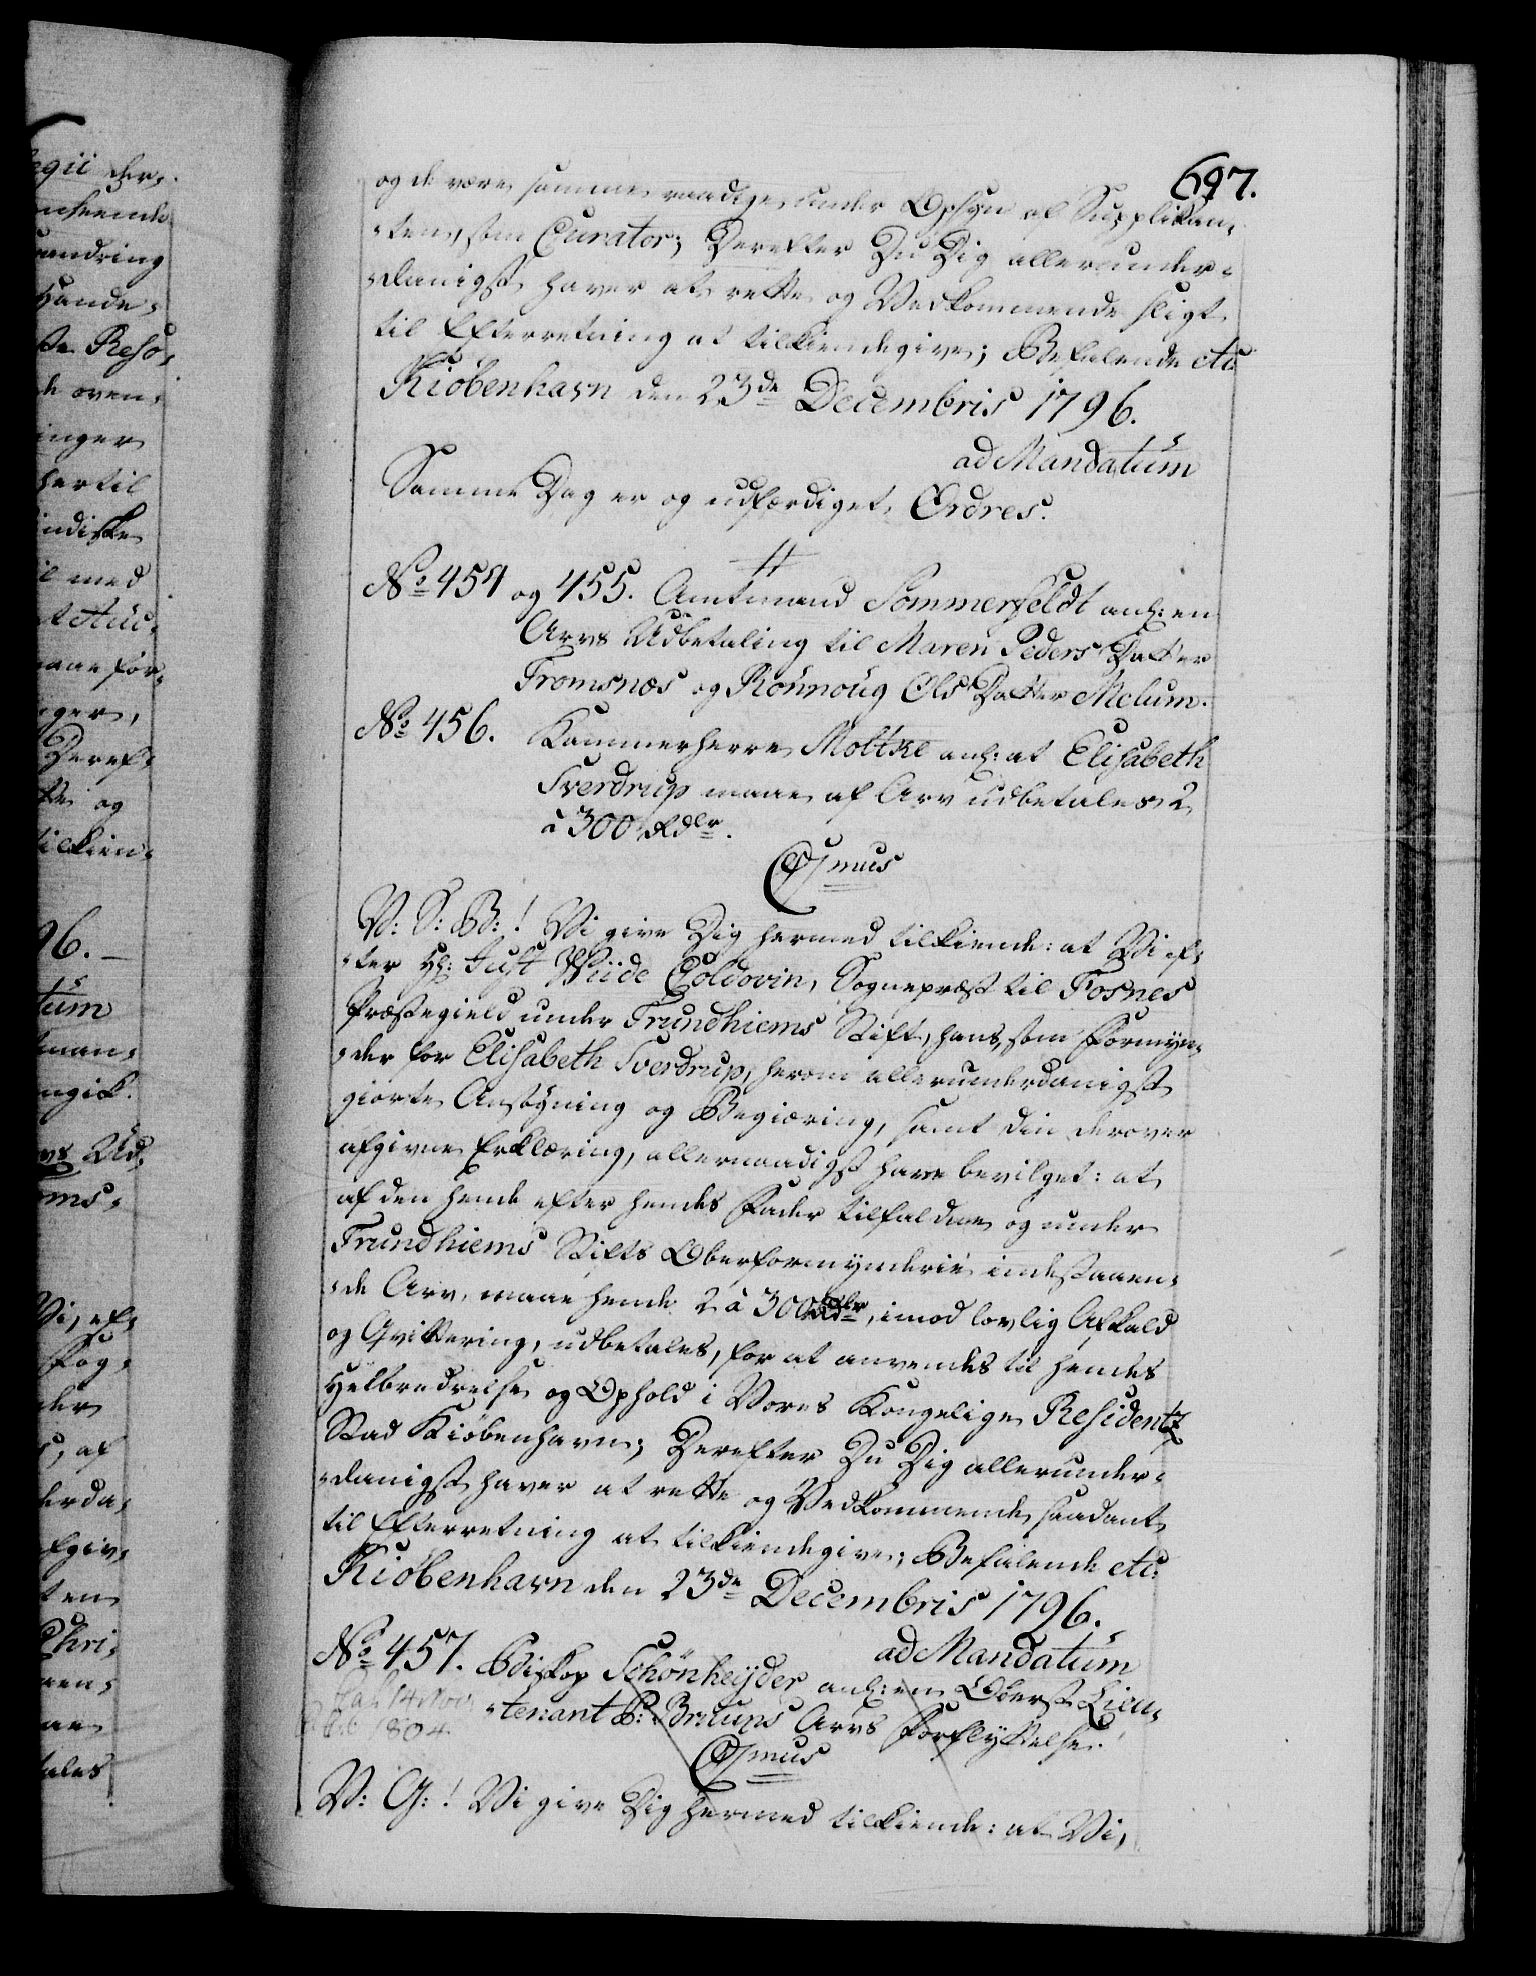 697.
og de være samme raadige under Opsyn af Supplikan-
-ten, som Curator; Derefter Du Dig allerunder-
-danigst haver at rette og Vedkommende sligt
til Efterretning at tilkiendegive; Befalende etc:
Kiøbenhavn den 23de Decembris 1796.
ad Mandatum
Samme Dag er og udfærdiget Ordres.
No 454 og 455. Amtmand Sommerfeldt anl: en
Arvs Udbetaling til Maren Peders Datter
Tromsnæs og Rønnoug Ols Datter Melum.
No 456. Kammerherre Moltke anl: at Elisabeth
Sverdrup maae af Arv udbetales 2
à 300 Rdlr.
C7mus
V: S: B:! Vi give Dig hermed tilkiende: at Vi ef-
-ter Hr: Just Wiide Coldevin, Sognepræst til Fosnes
Præstegield under Trundhiems Stift, hans, som Formyn-
-der for Elisabeth Sverdrup, herom allerunderdanigst
giorte Ansøgning og Begiæring, samt din derover
afgivne Erklæring, allernaadigst have bevilget: at
af den hende efter hendes Fader tilfaldne og under
Trundhiems Stifts Oberformynderie indestaaen-
-de Arv, maae hende 2 à 300 Rdlr, imod lovlig Afkald
og Qvittering, udbetales, for at anvendes til hendes
Helbredreise og Ophold i Vores Kongelige Residentz
Stad Kiøbenhavn; Derefter Du Dig allerunder-
-danigst haver at rette og Vedkommende saadant
til Efterretning at tilkiendegive; Befalende etc:
Kiøbenhavn den 23de Decembris 1796.
ad Mandatum
No 457. Biskop Schønheyder anl: en Oberst Lieu-
-tenant B: Bruuns Arvs Forflyttelse.
14 Nov
1804
C7mus
V: G:! Vi give Dig hermed tilkiende: at Vi,